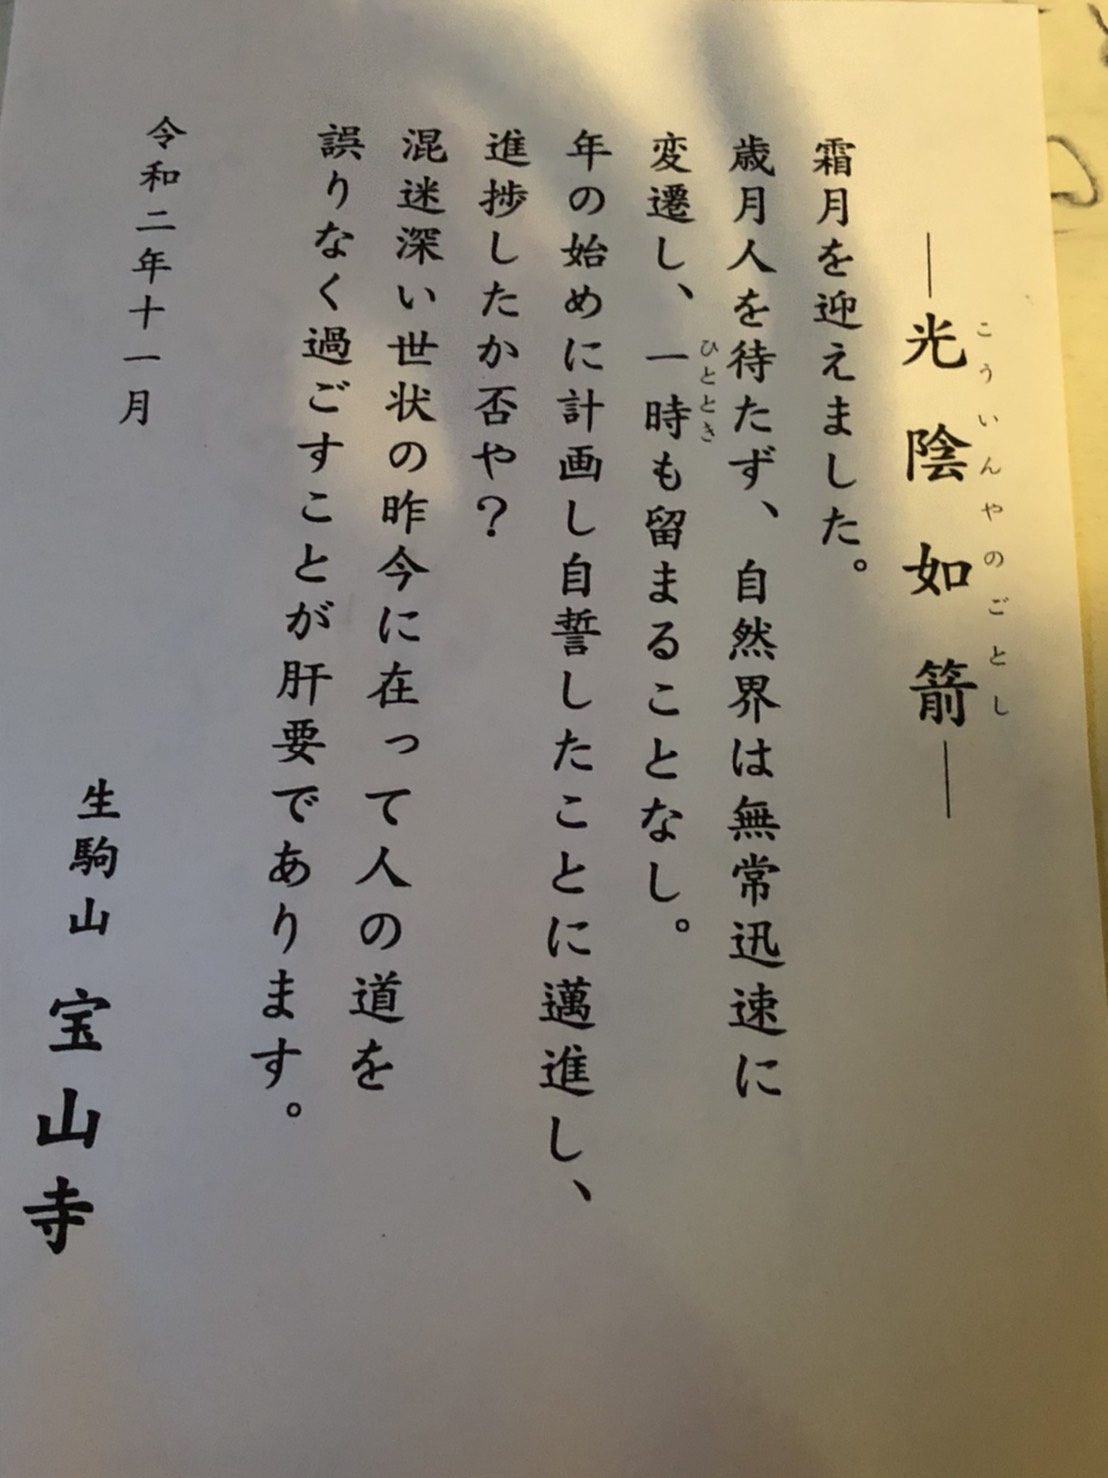 ―光陰如箭―
こういんやのごとし
霜月を迎えました。
歳月人を待たず、自然界は無常迅速に
変遷し、一時も留まることなし。
ひととき
年の始めに計画し自誓したことに邁進し、
進捗したか否や？
混迷深い世状の昨今に在って人の道を
誤りなく過ごすことが肝要であります。
令和二年十一月
生駒山 宝山寺